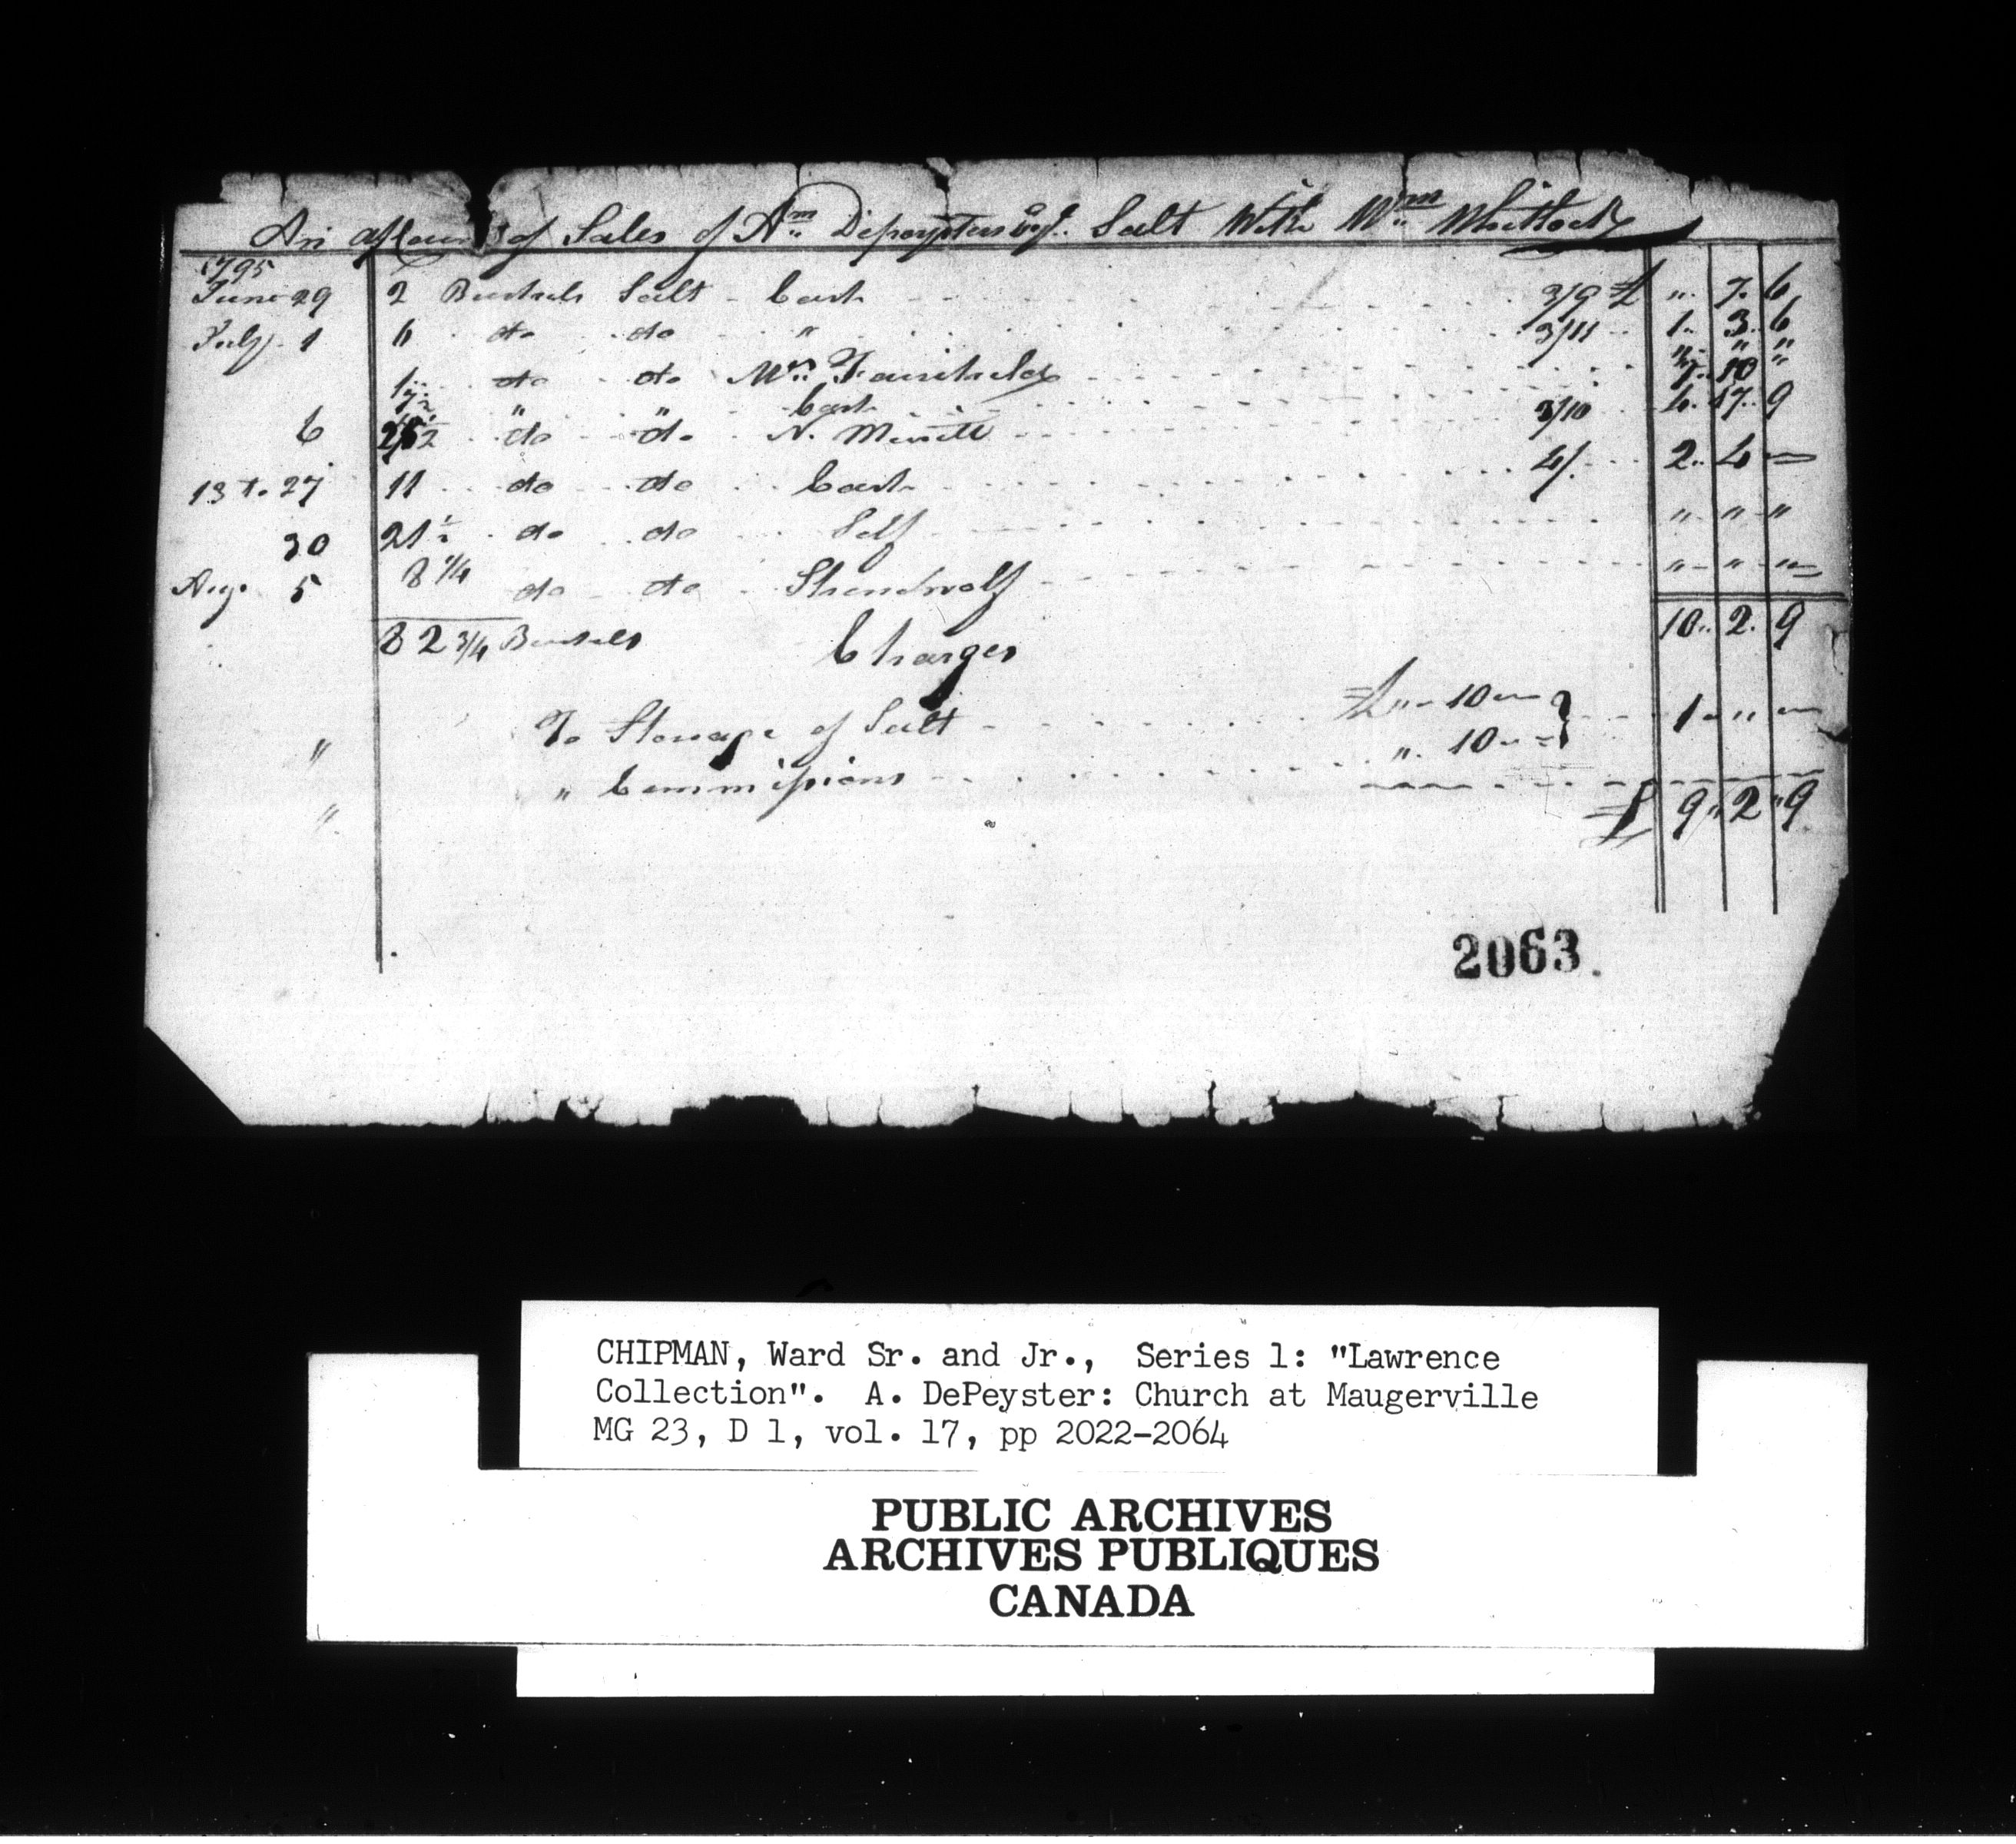 An Account of Sales of Am Depeysters Esqr. Salt With Wm Whitlock
1795
June 29 2 Bushels Salt - Cash 3/9 £ " 7. 6
July 1 6 do do " 3/11 1. 3. 6
1 do do Mrs Fairchilds " " "
" " Cash 10
6 25½ do do N. Merritt 3/10 4. 17. 9
13 to 27 11 do do Cash 4/. 2. 4 —
30 21½ do do Self " " "
Aug. 5 8 1/4 do do Shoudwolf " " "
82 3/4 Bushels 10.. 2. 9
Charges
" To Storage of Salt £ " - 10 — } 1 - " —
" " Commissions " 10 —
£ 9 " 2 " 9
2063.
CHIPMAN, Ward Sr. and Jr., Series 1: "Lawrence
Collection". A. DePeyster: Church at Maugerville
MG 23, D 1, vol. 17, pp 2022-2064
PUBLIC ARCHIVES
ARCHIVES PUBLIQUES
CANADA